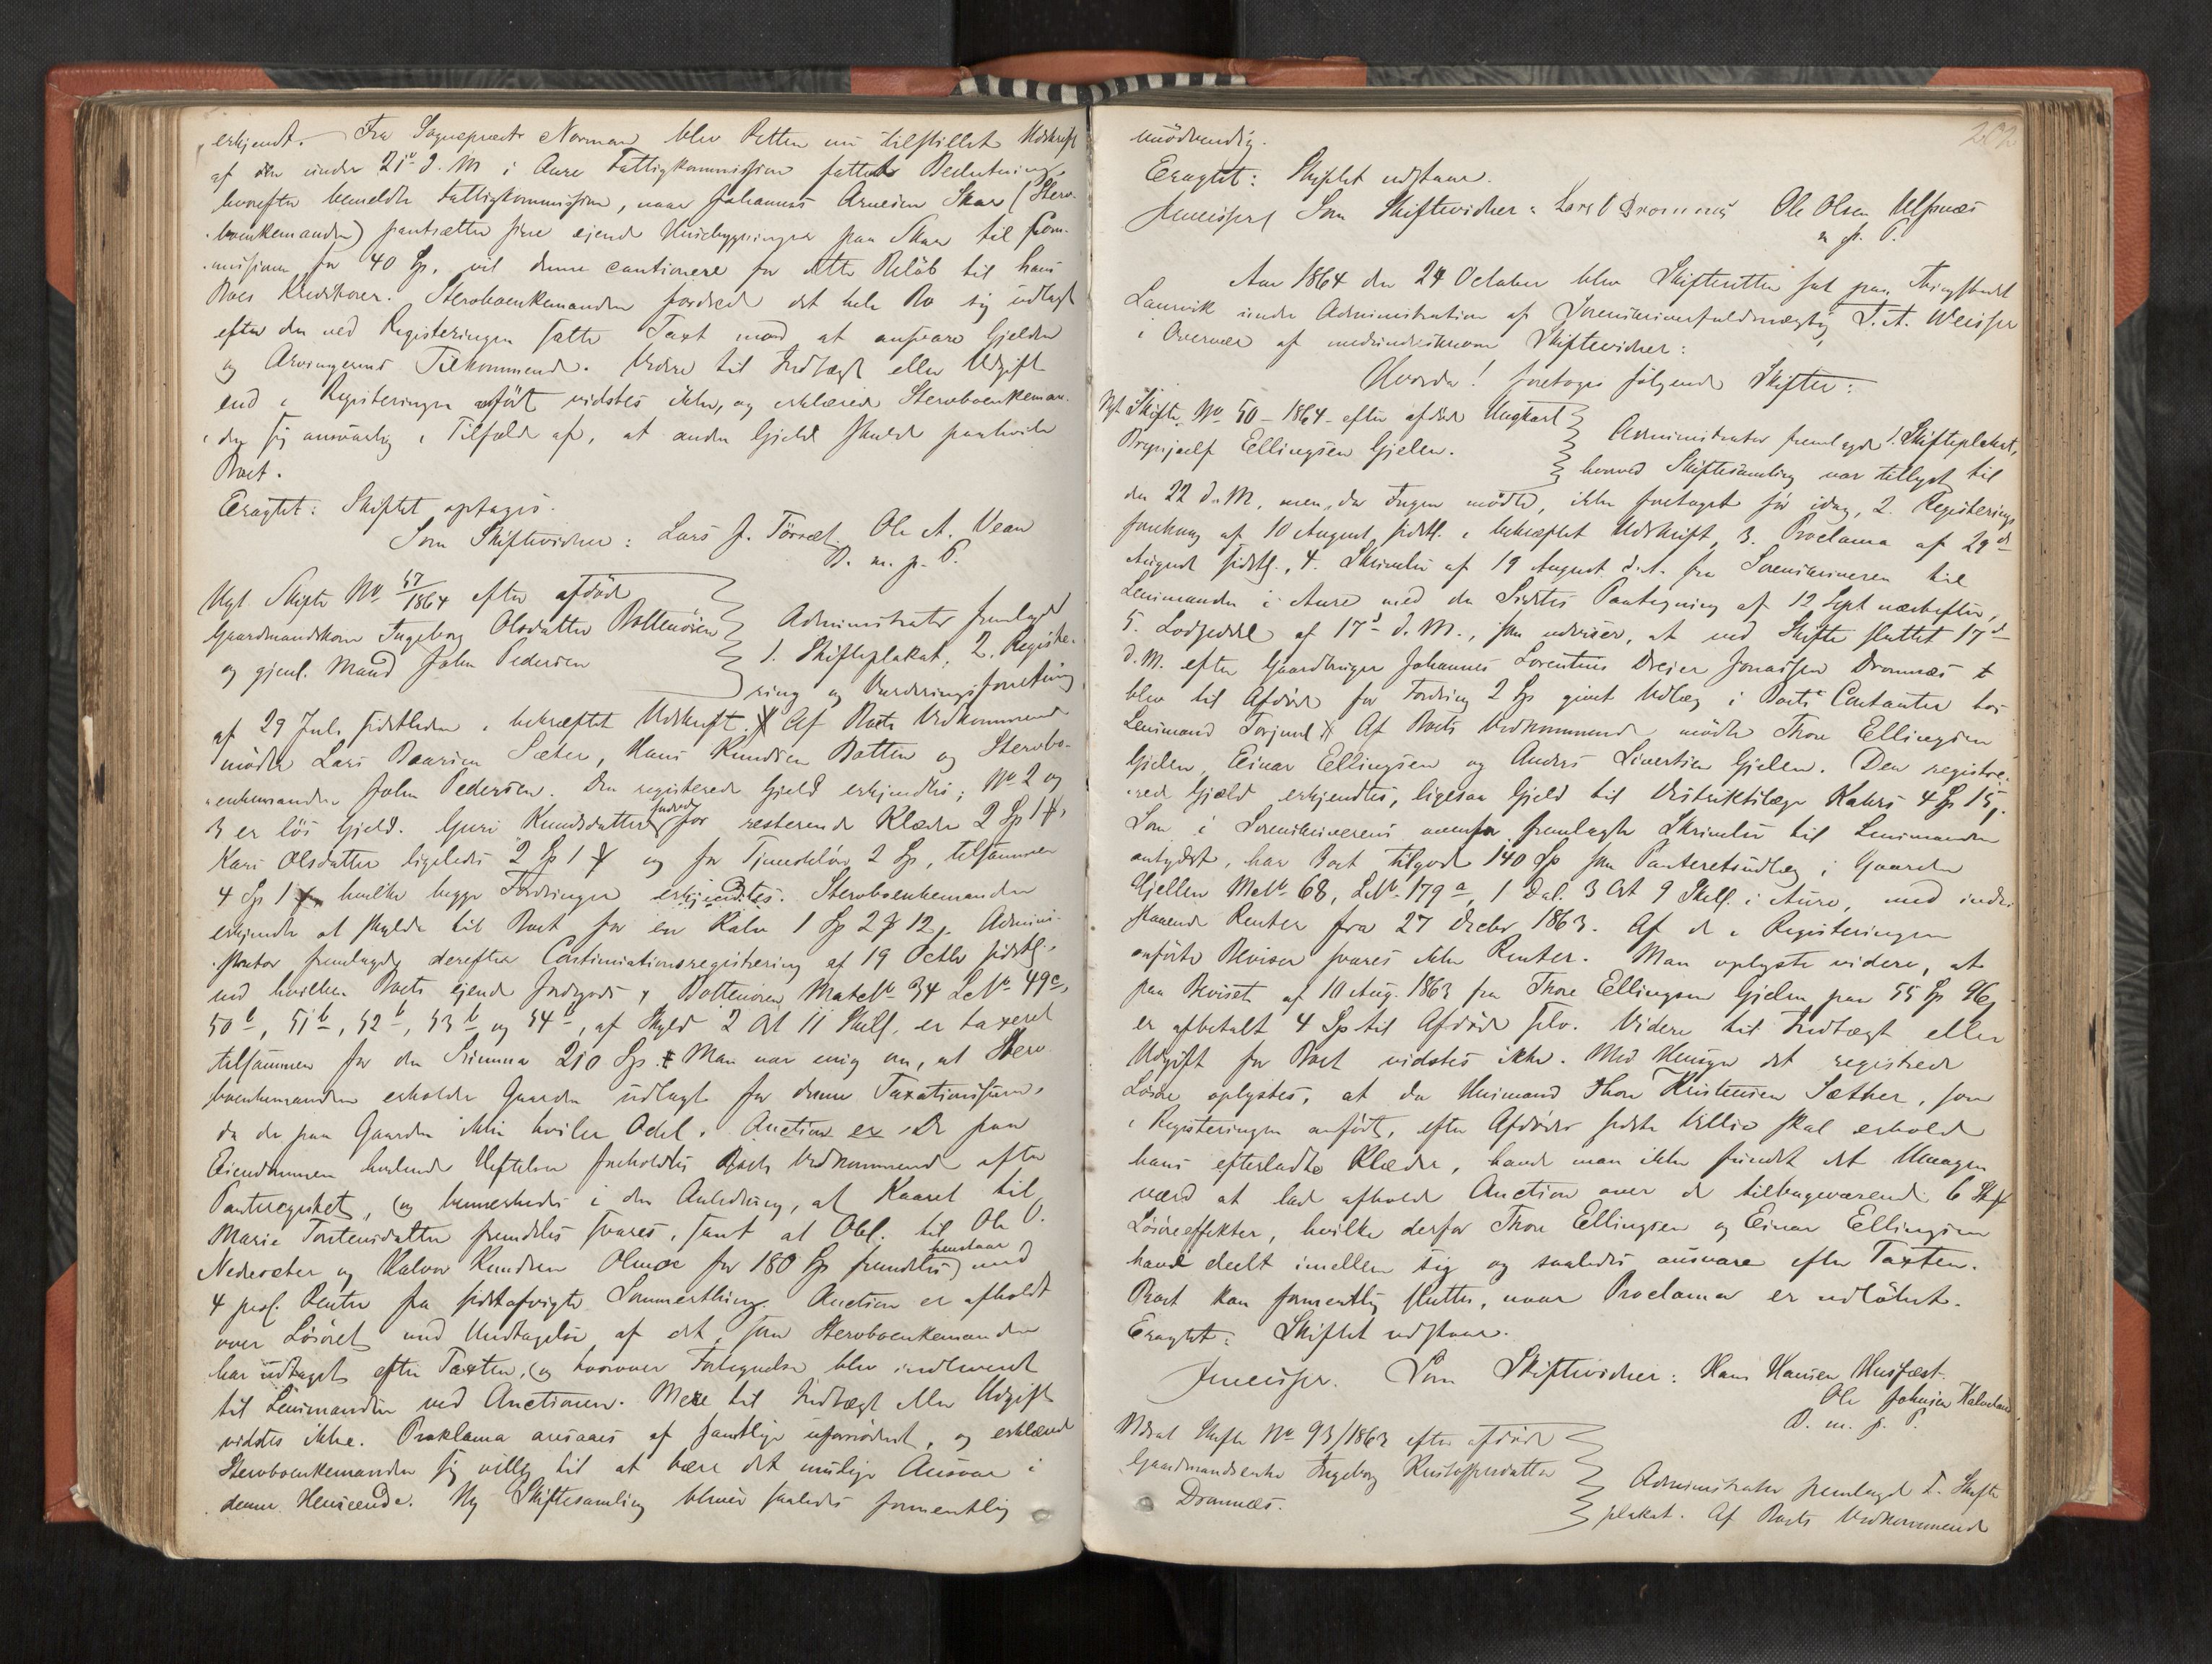 erkjendt. Fra Sognepræst Norman blev Retten nu tilstillet Udskrift
af den under 21de d. M i Aure Fattigkommission fattede Beslutning,
hvorefter bemeldte Fattigkommission, naar Johannes Arnesen Skar (Sterv-
boenkemanden) pantsætter sine eiende Huusbygninger paa Skar til Com-
missionen for 40 Sp, vil denne cautionere for dette Beløb til hans
Boes Kreditorer. Stervboenkemanden fordrede det hele Bo sig udlagt
efter den ved Registeringen satte Taxt mod at ansvare Gjelden
og Arvingernes Tilkommende. Videre til Indtægt eller Udgift
end i Registeringen anført vidstes ikke, og erklærede Stervboenkeman-
den sig ansvarlig i Tilfælde af, at anden Gjeld skulde paahvile
Boet.
Eragtet: Skiftet optages.
Som Skiftevidner: Lars J. Torset. Ole A. Vean
P. m. p. P.
Nyt Skifte No 57/1864 efter afdöde
Gaardmandskone Ingeborg Olsdatter Bottenören
og gjenl. Mand John Pedersen
Administrator fremlagde
1. Skifteplakat, 2. Registe-
ring og Vurderingsforretning
af 29 Juli sidstleden i bekræftet Udskrift. Af Boets Vedkommende
mödte Lars Baarsen Sæter, Hans Knudsen Botten og Stervbo-
enkemanden John Pedersen. Den registerede Gjeld erkjendtes; No 2 og
3 er lös Gjeld. Guri Knudsdatter fordrede for resterende Klæder 2 Sp 1
Kari Olsdatter ligeledes 2 Sp 1 og for Tjenestelön 2 Sp, tilsammen
4 Sp 1 hvilke begge Fordringer erkjendtes. Stervboenkemanden
erkjendte at skylde til Boet for en Kalv 1 Sp 2 12. Admini-
strator fremlagde derefter Continuationsregistrering af 19 Octbr sidstl.,
ved hvilken Boets eiende Jordgods Bottenören Mat No 34 L No 49c,
50b, 51b, 52b, 53b og 54b, af Skyld 2 Ort 11 Skill. er taxeret
tilsammen for den Summa 210 Sp. Man var enig om, at Sterv-
boenkemanden erholder Gaarden udlagt for denne Taxationssum,
da der paa Gaarden ikke hviler Odel. Auction er De paa
Eiendommen heftende Heftelser foreholdtes Boets Vedkommende efter
Panteregistret, og bemærkedes i den Anledning, at Kaaret til
Marie Torstensdatter fremdeles svares, samt at Obl. til Ole O.
Nedresæter og Halvor Knudsen for 180 Sp fremdeles henstaar med
4 pCt. Renter fra sidstafvigte Sommerthing. Auction er afholdt
over Lösöret med Undtagelse af det, som Stervboenkemanden
har udtaget efter Taxten, og hvorover Fortegnelse blev indleveret
til Lensmanden ved Auctionen. Mere til Indtægt eller Udgift
vidstes ikke. Proklama ansaaes af samtlige ufornödent, og erklærede
Stervboenkemanden sig villig til at bære det mulige Ansvar i
denne Henseende. Ny Skiftesamling bliver saaledes formentlig
202
unödvendig.
Eragtet: Skiftet udstaar.
Som Skiftevidner: Lars O Dromnæs Ole Olsen Ulfsnæs
m p. P.
Aar 1864 den 24 October blev Skifteretten sat paa Thingstedet
Laurvik under Administration af Sorenskriverfuldmægtig J. A. Weisser
i Overvær af medundertegnede Skiftevidner:
Hvorda! foretoges fölgende Skifter:
Nyt Skifte No 50-1864 efter afdöde Ungkarl
Brynjulf Ellingsen Gjelen.
Administrator fremlagde 1. Skifteplakat,
hvorved Skiftesamling var tillyst til
den 22 d. M, men, da Ingen mödte, ikke foretaget før idag, 2. Registerings-
forretning af 10 August sidstl. i bekræftet Udskrift, 3. Proclama af 29de
August sidstl., 4. Skrivelse af 19 August d. A. fra Sorenskriveren til
Lensmanden i Aure med den Sidstes Paategning af 12 Sept næstefter,
5. Lodseddel af 17de d. M., som udviser, at ved Skifte sluttet 17de
d. M. efter Gaardbruger Johannes Lorentius Dreier Jonassen Dromnæs
blev til Afdöde for Fordring 2 Sp givet Udlæg i Boets Contanter hos
Lensmand Torjuul. Af Boets Vedkommende mödte Thore Ellingsen
Gjelen, Einar Ellingsen og Anders Sivertsen Gjelen. Den registre-
rede Gjæld erkjendtes, ligesaa Gjeld til Distriktslæge Kahrs 4 Sp 15.
Som i Sorenskriverens ovenfor fremlagte Skrivelse til Lensmanden
antydet, har Boet tilgode 140 Sp som Panteretsudlæg i Gaarden
Gjellen Mat No 68, L No 179a, 1 Dal. 3 Ort 9 Skill. i Aure, med inde-
staaende Renter fra 27 Decbr 1863. Af de i Registeringen
anførte Beviser svares ikke Renter. Man oplyste videre, at
paa Beviset af 10 Aug. 1863 fra Thore Ellingsen Gjelen paa 55 Sp 96
er afbetalt 4 Sp til Afdöde selv. Videre til Indtægt eller
Udgift for Boet vidstes ikke. Med Hensyn det registrede
Lösöre oplystes, at da Huusmand Thore Kristensen Sæther, som
i Registeringen anført, efter Afdödes sidste Villie skal erholde
hans efterladte Klæder, havde man ikke fundet det Umagen
værd at lade afholde Auction over de tilbageværende 6 Stkr
Lösöreeffekter, hvilke derfor Thore Ellingsen og Einar Ellingsen
havde deelt imellem sig og saaledes ansvare efter Taxten.
Boet kan formentlig sluttes, naar Proclama er udlöbet.
Eragtet: Skiftet udstaar.
Som Skiftevidner: Hans Hansen Husfæst.
Ole Johnsen
P. m. p. P.
Udsat Skifte No 93/1863 efter afdöde
Gaardmandsenke Ingeborg Kristoffersdatter
Dromnæs.
Administrator fremlagde 1. Skifte-
plakat. Af Boets Vedkommende